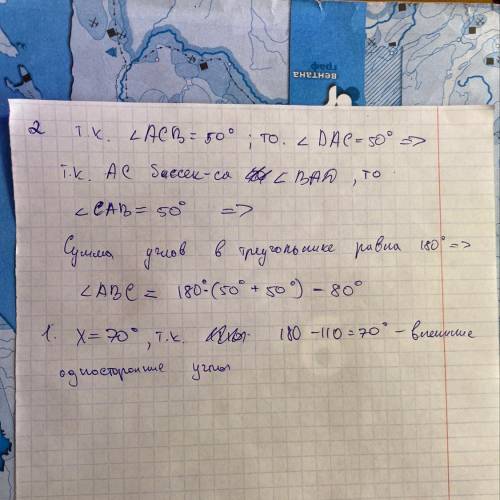 вентана
граф
2 т.к. ∠ACB = 50°; то. ∠DAC = 50° =>
т.к. AC биссек-са ∠BAD, то
∠CAB = 50° =>
Сумма углов в треугольнике равна 180° =>
∠ABC = 180° - (50° + 50°) - 80°
1. X = 70°, т.к. 180 - 110 = 70° - внешние
односторонние углы